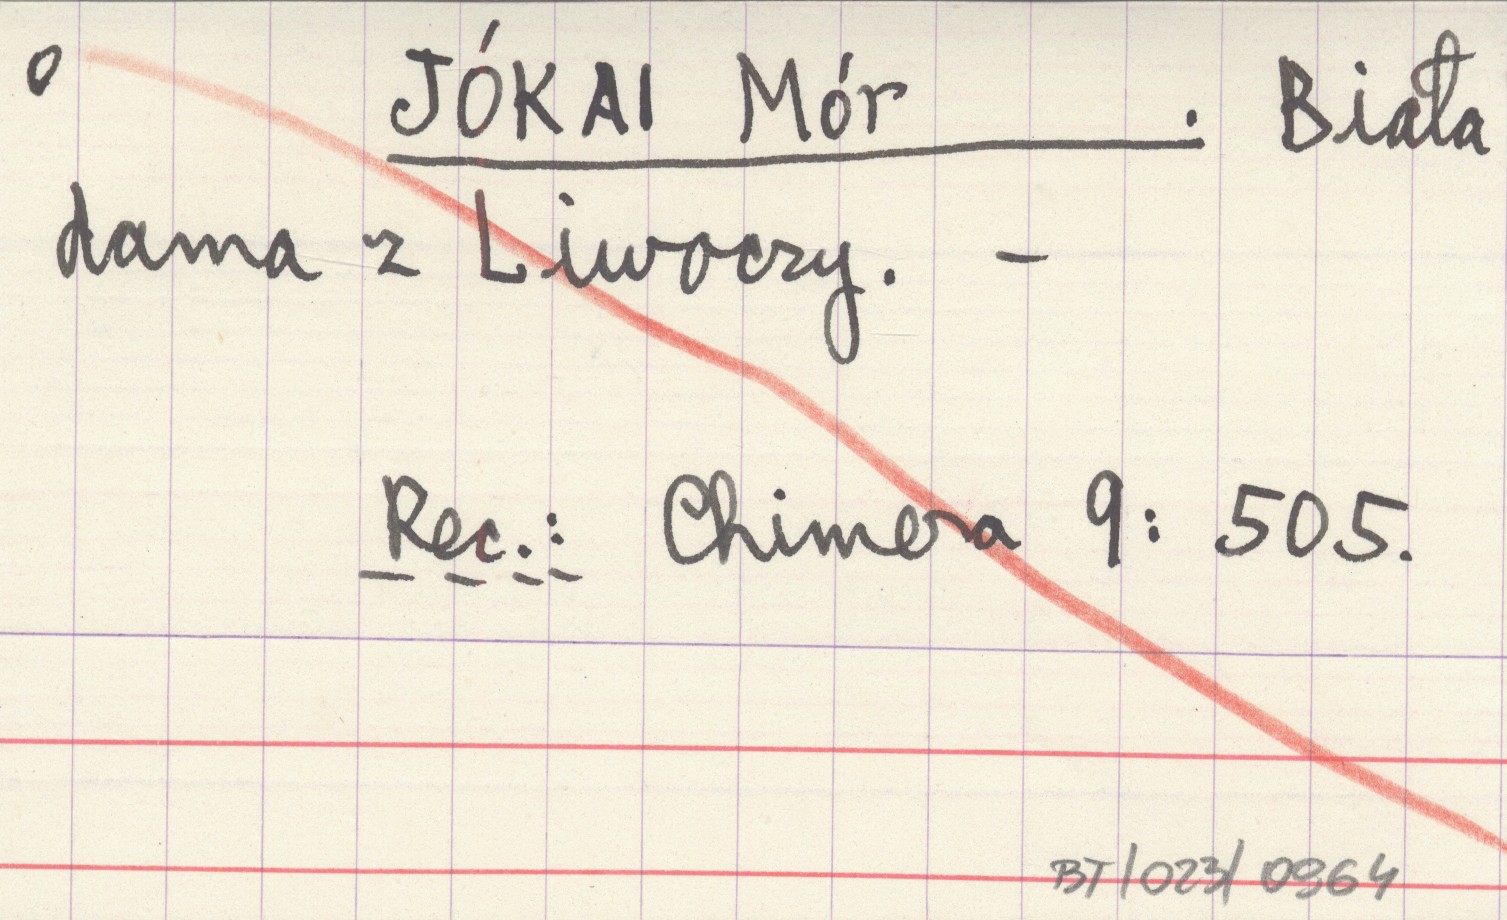 o JÓKAI Mór . Biała
dama z Liwoczy. -
Rec.: Chimera 9: 505.
BT/023/0964